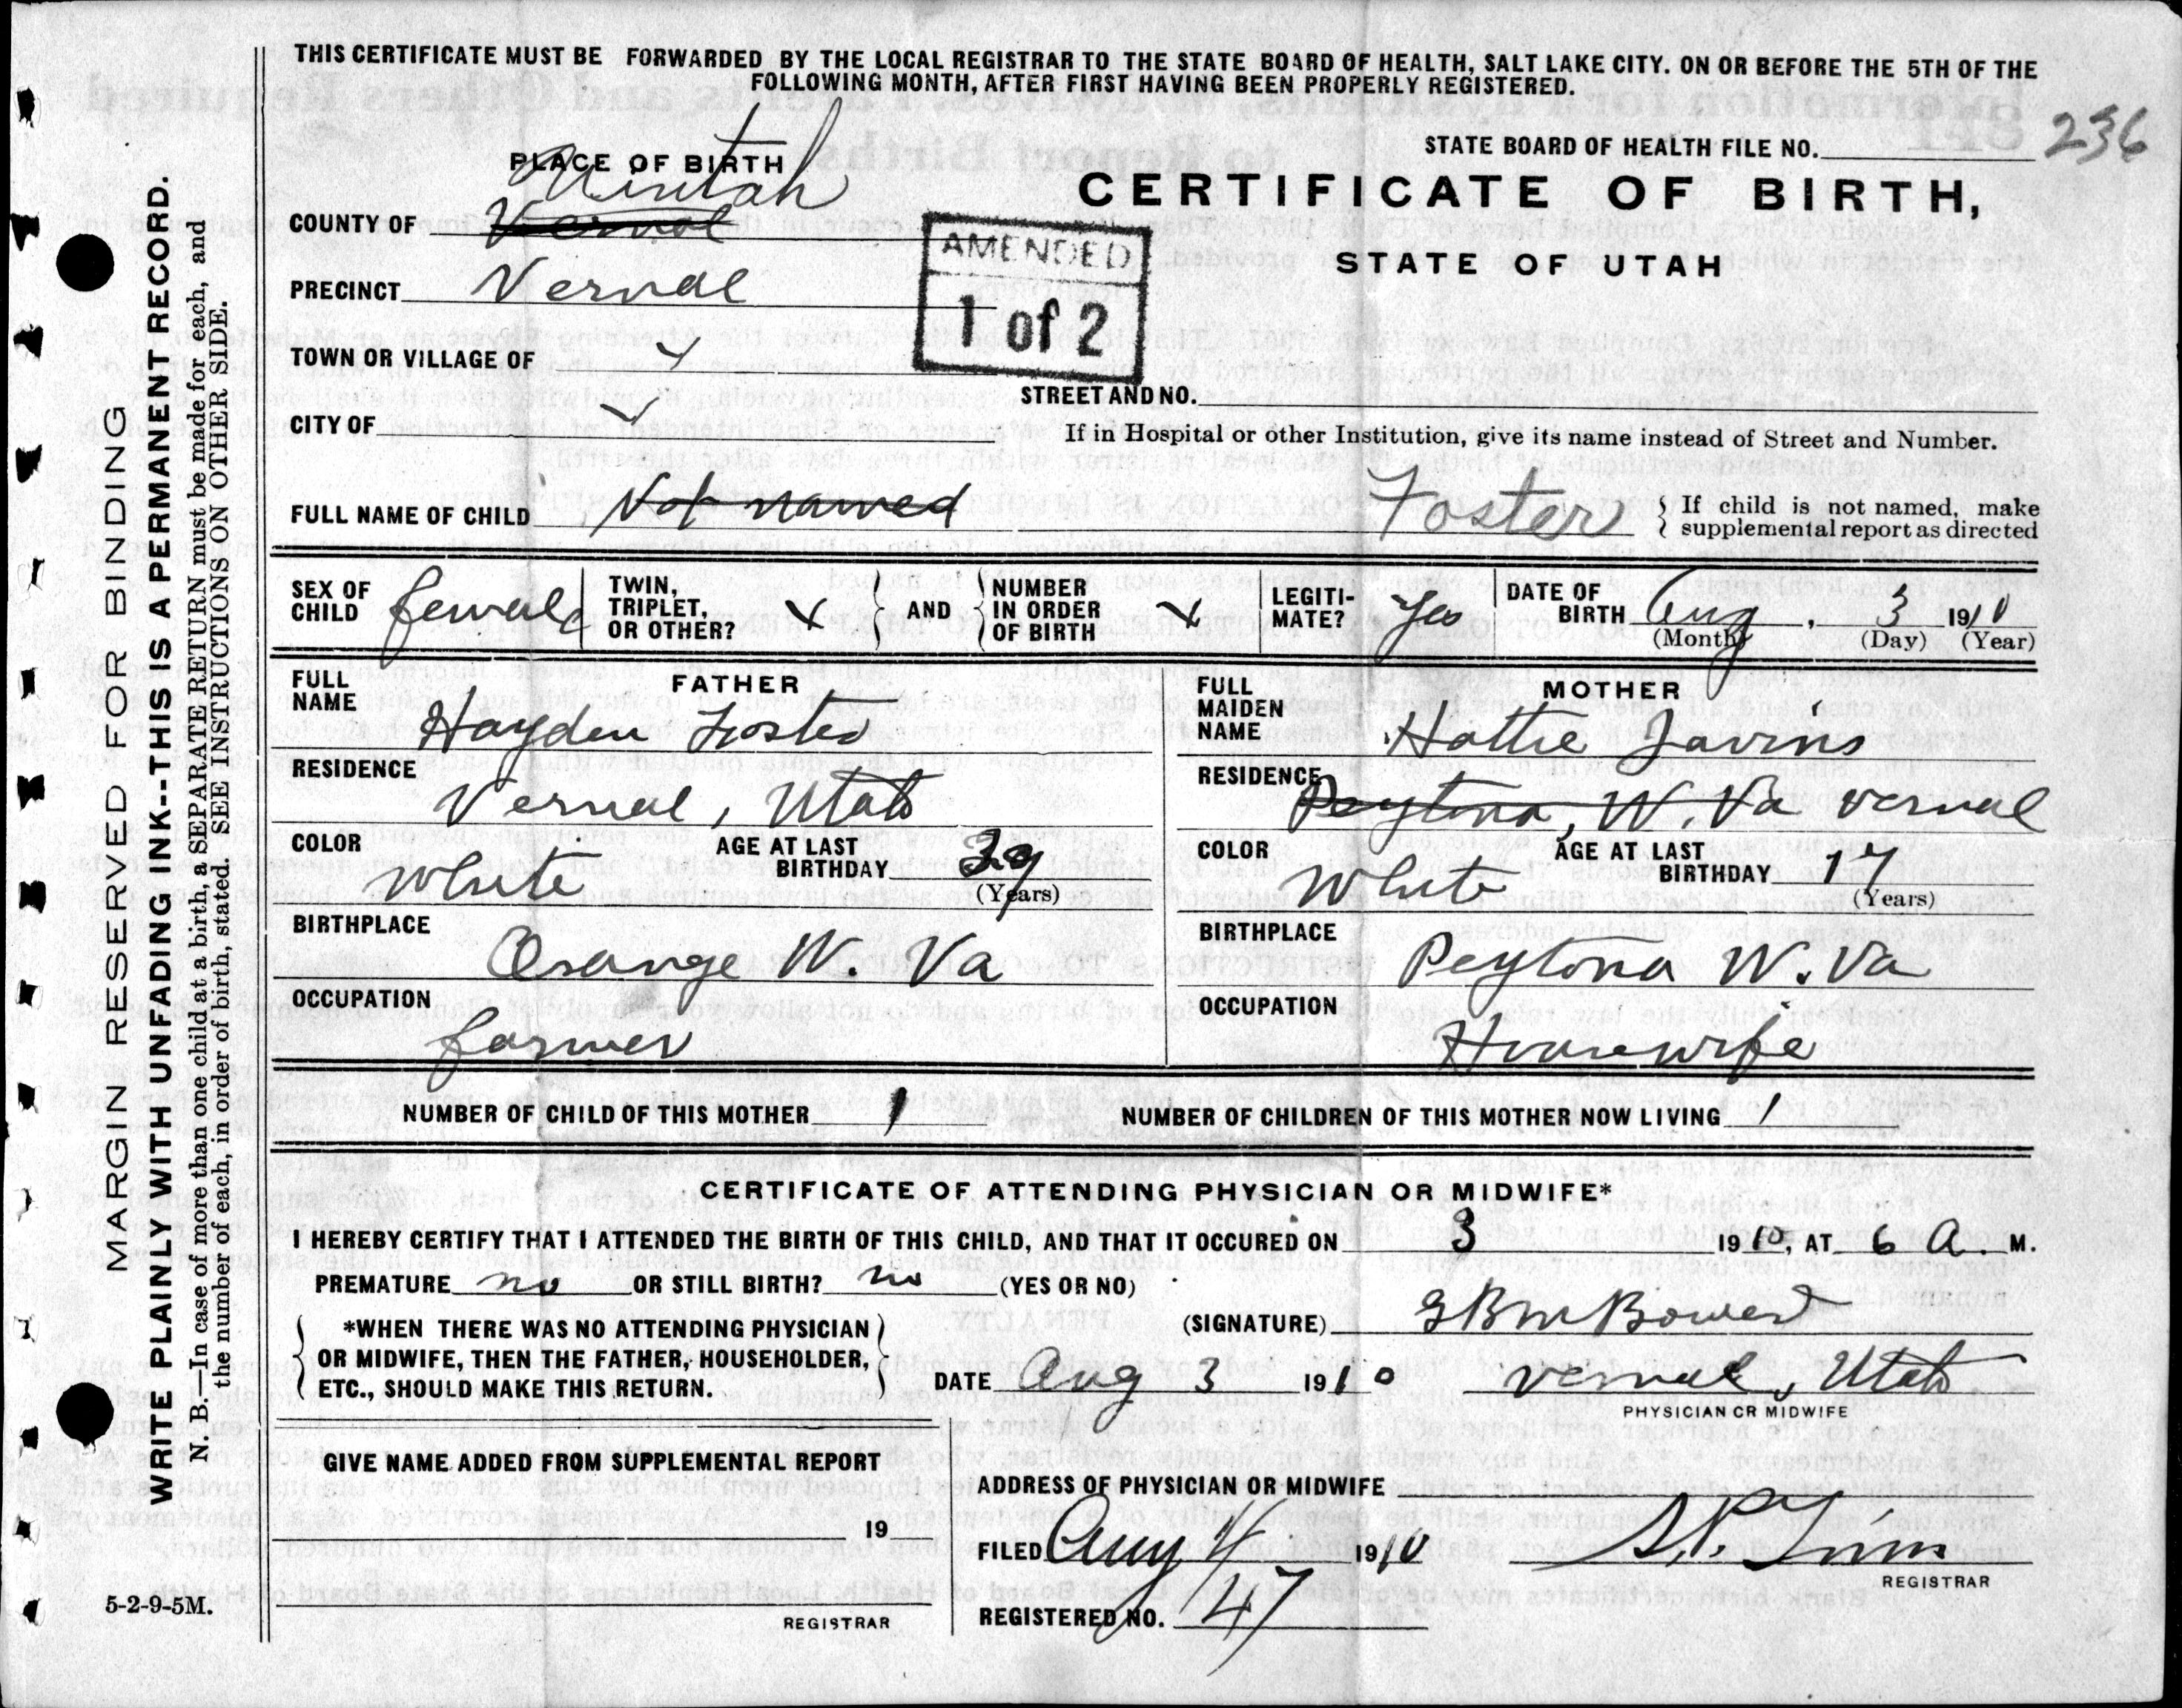 THIS CERTIFICATE MUST BE FORWARDED BY THE LOCAL REGISTRAR TO THE STATE BOARD OF HEALTH, SALT LAKE CITY. ON OR BEFORE THE 5TH OF THE
FOLLOWING MONTH, AFTER FIRST HAVING BEEN PROPERLY REGISTERED.
STATE BOARD OF HEALTH FILE NO. 236
CERTIFICATE OF BIRTH,
STATE OF UTAH
PLACE OF BIRTH
Uintah
COUNTY OF Vernal
AMENDED
1 of 2
PRECINCT Vernal
TOWN OR VILLAGE OF
STREET AND NO.
CITY OF
If in Hospital or other Institution, give its name instead of Street and Number.
FULL NAME OF CHILD Not named Foster { If child is not named, make
supplemental report as directed
SEX OF CHILD female TWIN, TRIPLET, OR OTHER? x AND NUMBER IN ORDER OF BIRTH x LEGITI-MATE? Yes DATE OF BIRTH Aug. 3 1910
(Month) (Day) (Year)
FATHER
FULL NAME Hayden Foster
RESIDENCE Vernal, Utah
COLOR White AGE AT LAST BIRTHDAY
(Years)
BIRTHPLACE Orange W. Va
OCCUPATION farmer
MOTHER
FULL MAIDEN NAME Hattie Javins
RESIDENCE Peytona, W. Va Vernal
COLOR White AGE AT LAST BIRTHDAY 17
(Years)
BIRTHPLACE Peytona W. Va
OCCUPATION Housewife
NUMBER OF CHILD OF THIS MOTHER 1 NUMBER OF CHILDREN OF THIS MOTHER NOW LIVING 1
CERTIFICATE OF ATTENDING PHYSICIAN OR MIDWIFE*
I HEREBY CERTIFY THAT I ATTENDED THE BIRTH OF THIS CHILD, AND THAT IT OCCURED ON 3 1910, AT 6 A. M.
PREMATURE no OR STILL BIRTH? no (YES OR NO)
*WHEN THERE WAS NO ATTENDING PHYSICIAN
OR MIDWIFE, THEN THE FATHER, HOUSEHOLDER,
ETC., SHOULD MAKE THIS RETURN.
(SIGNATURE)
DATE Aug 3 1910 Vernal, Utah
PHYSICIAN OR MIDWIFE
GIVE NAME ADDED FROM SUPPLEMENTAL REPORT
19
REGISTRAR
ADDRESS OF PHYSICIAN OR MIDWIFE
FILED Aug 4 1910
REGISTRAR
REGISTERED NO. 147
5-2-9-5M.
MARGIN RESERVED FOR BINDING
WRITE PLAINLY WITH UNFADING INK--THIS IS A PERMANENT RECORD.
N. B.—In case of more than one child at a birth, a SEPARATE RETURN must be made for each, and
the number of each, in order of birth, stated. SEE INSTRUCTIONS ON OTHER SIDE.